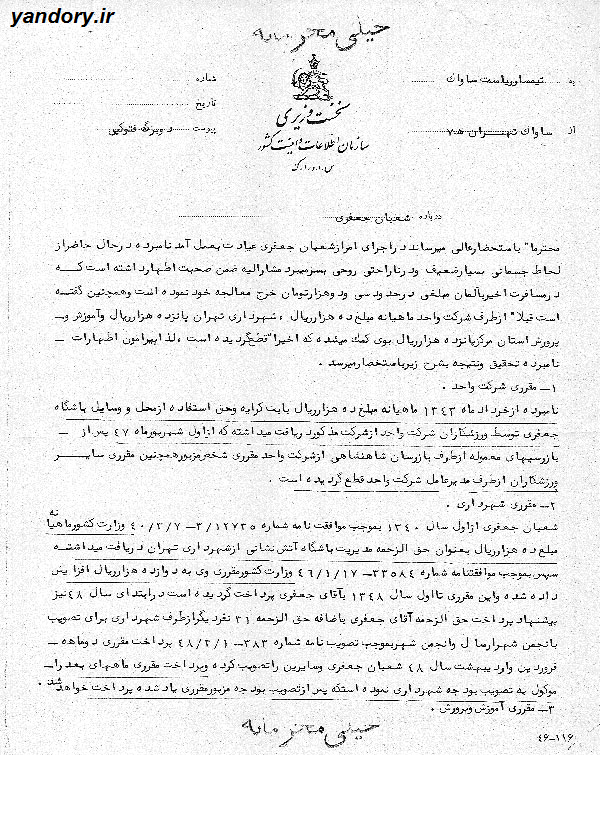 yandory.ir
خیلی محرمانه
به تیمسار ریاست ساواک
شماره
از ساواک تهران ۷ه
تاریخ
پیوست دو برگ فتوکپی
نخست وزیری
سازمان اطلاعات و امنیت کشور
س.ا.و.ا.ک
درباره شعبان جعفری
محترما" باستحضارعالی میرساند دراجرای امرازشعبان جعفری عیادت بعمل آمد نامبرده درحال حاضراز
لحاظ جسمانی بسیارضعیف ودرناراحتی روحی بسرمیبرد مشارالیه ضمن صحبت اظهارداشته است که
درمسافرت اخیربآلمان مبلغی درحدود سی ودوهزارتومان خرج معالجه خود نموده است وهمچنین گفته
است قبلا" ازطرف شرکت واحد ماهیانه مبلغ ده هزارریال ، شهرداری تهران پانزده هزارریال وآموزش و
پرورش استان مرکزپانزده هزارریال بوی کمک میشده که اخیرا"قطع گردیده است ، لذاپیرامون اظهارات
نامبرده تحقیق ونتیجه بشرح زیرباستحضارمیرسد .
۱ــ مقرری شرکت واحد .
نامبرده ازخرداد ماه ۱۳۴۳ ماهیانه مبلغ ده هزارریال بابت کرایه وحق استفاده ازمحل و وسایل باشگاه
جعفری توسط ورزشکاران شرکت واحد ازشرکت مذکوردریافت میداشته که ازاول شهریورماه ۴۷ پس از
بازرسیهای معموله ازطرف بازرسان شاهنشاهی ازشرکت واحد مقرری شخص مزبورهمچنین مقرری سایر
ورزشکاران ازطرف مدیرعامل شرکت واحد قطع گردیده است .
۲ــ مقرری شهرداری .
شعبان جعفری ازاول سال ۱۳۴۰ بموجب موافقت نامه شماره ۳/۱۲۷۳۵ـ۴۰/۲/۷ وزارت کشورماهیانه
مبلغ ده هزارریال بعنوان حق الزحمه مدیریت باشگاه آتش نشانی ازشهرداری تهران دریافت میداشته
سپس بموجب موافقتنامه شماره ۳۳۵۸۴ـ۴۶/۱/۱۷ وزارت کشورمقرری وی به دوازده هزارریال افزایش
داده شده واین مقرری تااول سال ۱۳۴۸ بآقای جعفری پرداخت گردیده است درابتدای سال ۴۸ نیز
پیشنهاد پرداخت حق الزحمه آقای جعفری باضافه حق الزحمه ۳۱ نفردیگرازطرف شهرداری برای تصویب
بانجمن شهرارسال وانجمن شهربموجب تصویب نامه شماره ۳۸۳ـ۴۸/۲/۱ پرداخت مقرری دوماهه
فروردین واردیبهشت سال ۴۸ شعبان جعفری وسایرین راتصویب کرده وپرداخت مقرری ماههای بعد را
موکول به تصویب بودجه شهرداری نموده استکه پس ازتصویب بودجه مزبورمقرری یادشده پرداخت خواهد شد .
۳ــ مقرری آموزش وپرورش .
خیلی محرمانه
۴۶-۱۱۶